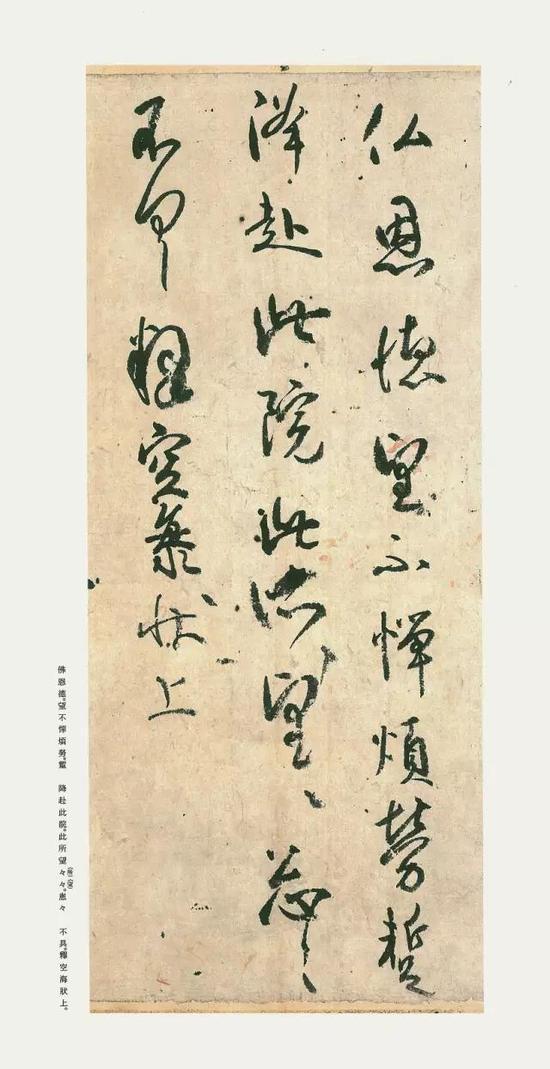 仏恩徳望不憚煩勞蹔
降赴此院此所望々忩々
不具釋空海状上
佛恩德。望不憚煩勞。蹔　降赴此院。此所望々々。悤々　不具。釋空海狀上。